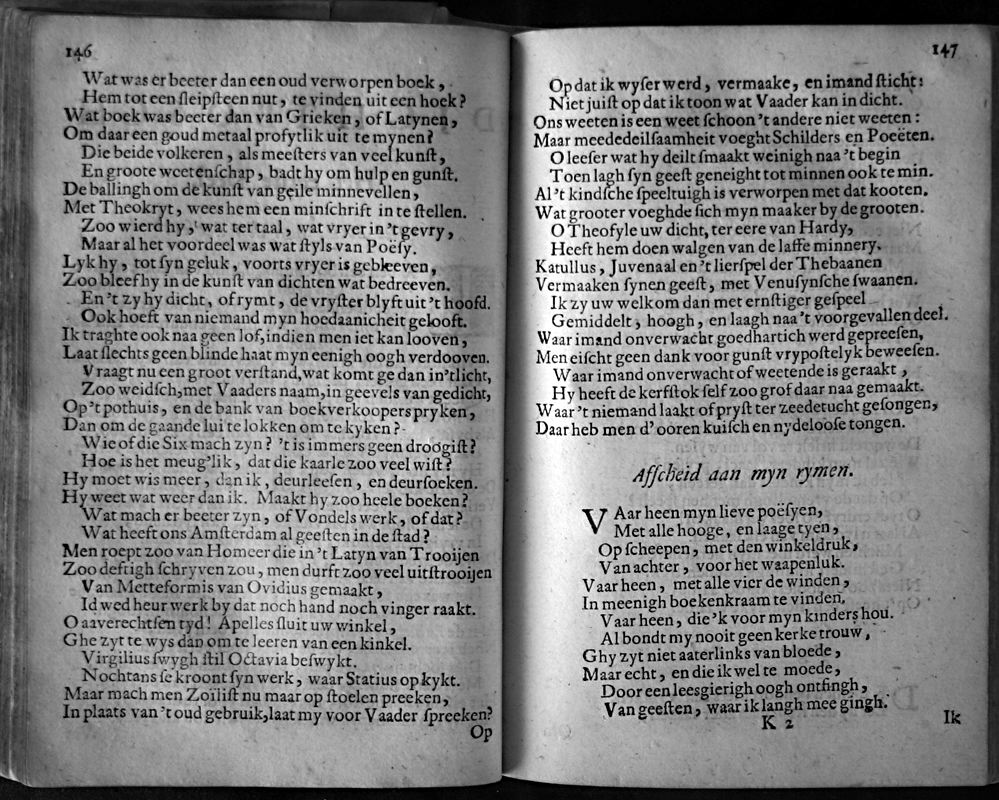 146
Wat was er beeter dan een oud verworpen boek,
Hem tot een sleipsteen nut, te vinden uit een hoek?
Wat boek was beeter dan van Grieken, of Latynen,
Om daar een goud metaal profytlik uit te mynen?
Die beide volkeren, als meesters van veel kunst,
En groote weetenschap, badt hy om hulp en gunst.
De ballingh om de kunst van geile minnevellen,
Met Theokryt, wees hem een minschrift in te stellen.
Zoo wierd hy, wat ter taal, wat vryer in 't gevry,
Maar al het voordeel was wat styls van Poësy.
Lyk hy, tot syn geluk, voorts vryer is gebleeven,
Zoo bleef hy in de kunst van dichten wat bedreeven.
En 't zy hy dicht, of rymt, de vryster blyft uit 't hoofd.
Ook hoeft van niemand myn hoedaanicheit gelooft.
Ik traghte ook naa geen lof, indien men iet kan looven,
Laat slechts geen blinde haat myn eenigh oogh verdooven.
Vraagt nu een groot verstand, wat komt ge dan in 't licht,
Zoo weidsch, met Vaaders naam, in gevels van gedicht,
Op 't pothuis, en de bank van boekverkoopers pryken,
Dan om de gaande lui te lokken om te kyken?
Wie of die Six mach zyn? 't is immers geen droogist?
Hoe is het meug'lik, dat die kaarle zoo veel wist?
Hy moet wis meer, dan ik, deurleesen, en deursoeken.
Hy weet wat weer dan ik. Maakt hy zoo heele boeken?
Wat mach er beeter zyn, of Vondels werk, of dat?
Wat heeft ons Amsterdam al geesten in de stad?
Men roept zoo van Homeer die in 't Latyn van Trooijen
Zoo deftigh schryven zou, men durft zoo veel uitstrooijen
Van Metteformis van Ovidius gemaakt,
Id wed heur werk by dat noch hand noch vinger raakt.
O aaverechtsen tyd! Apelles sluit uw winkel,
Ghe zyt te wys dan om te leeren van een kinkel.
Virgilius swygh stil Octavia beswykt.
Nochtans se kroont syn werk, waar Statius op kykt.
Maar mach men Zoïlist nu maar op stoelen preeken,
In plaats van 't oud gebruik, laat my voor Vaader spreeken?
Op
147
Op dat ik wyser werd, vermaake, en imand sticht:
Niet juist op dat ik toon wat Vaader kan in dicht.
Ons weeten is een weet schoon 't andere niet weeten:
Maar meededeilsaamheit voeght Schilders en Poeëten.
O leeser wat hy deilt smaakt weinigh naa 't begin
Toen lagh syn geest geneight tot minnen ook te min.
Al 't kindsche speeltuigh is verworpen met dat kooten.
Wat grooter voeghde sich myn maaker by de grooten.
O Theofyle uw dicht, ter eere van Hardy,
Heeft hem doen walgen van de laffe minnery.
Katullus, Juvenaal en 't lierspel der Thebaanen
Vermaaken synen geest, met Venusynsche swaanen.
Ik zy uw welkom dan met ernstiger gespeel
Gemiddelt, hoogh, en laagh naa 't voorgevallen deel.
Waar imand onverwacht goedhartich werd gepreesen,
Men eischt geen dank voor gunst vrypostelyk beweesen.
Waar imand onverwacht of weetende is geraakt,
Hy heeft de kerfstok self zoo grof daar naa gemaakt.
Waar 't niemand laakt of pryst ter zeedetucht gesongen,
Daar heb men d' ooren kuisch en nydeloose tongen.
Afscheid aan myn rymen.
VAar heen myn lieve poësyen,
Met alle hooge, en laage tyen,
Op scheepen, met den winkeldruk,
Van achter, voor het waapenluk.
Vaar heen, met alle vier de winden,
In meenigh boekenkraam te vinden.
Vaar heen, die 'k voor myn kinders hou.
Al bondt my nooit geen kerke trouw,
Ghy zyt niet aaterlinks van bloede,
Maar echt, en die ik wel te moede,
Door een leesgierigh oogh ontfingh,
Van geesten, waar ik langh mee gingh.
K 2
Ik